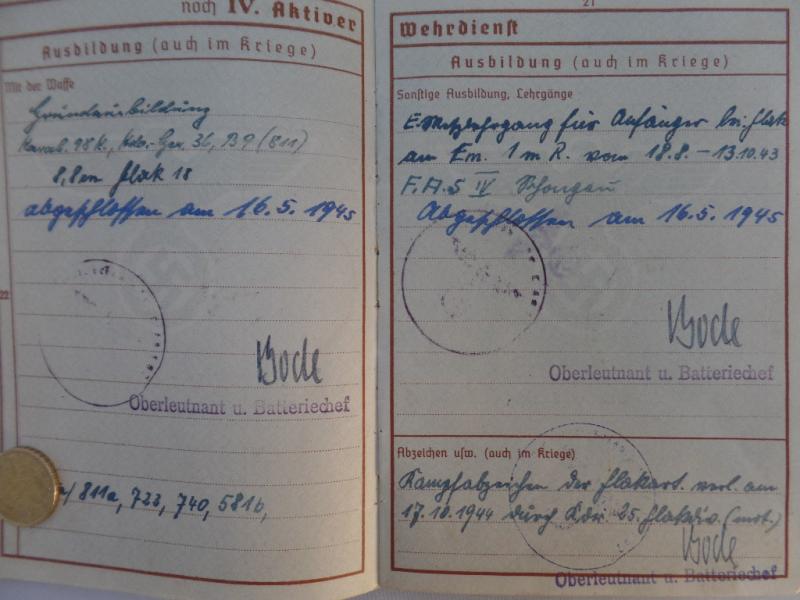 noch IV. Aktiver
Ausbildung (auch im Kriege)
Mit der Waffe
Grundausbildung
Karab. 98k., Kdo.-Ger. 36, B9 (811)
8,8 cm Flak 18
abgeschlossen am 16.5.1945
Bode
Oberleutnant u. Batteriechef
811a, 723, 740, 581b,
22
21
Wehrdienst
Ausbildung (auch im Kriege)
Sonstige Ausbildung, Lehrgänge
E-Meßlehrgang für Anfänger bei Flak
am Em. 1 m R. vom 18.8. – 13.10.43
F.A.S IV Schongau
Abgeschlossen am 16.5.1945
Bode
Oberleutnant u. Batteriechef
Abzeichen usw. (auch im Kriege)
Kampfabzeichen der Flakart. verl. am
17.10.1944 durch Kdr. 25. Flakdiv. (mot.)
Bode
Oberleutnant u. Batteriechef